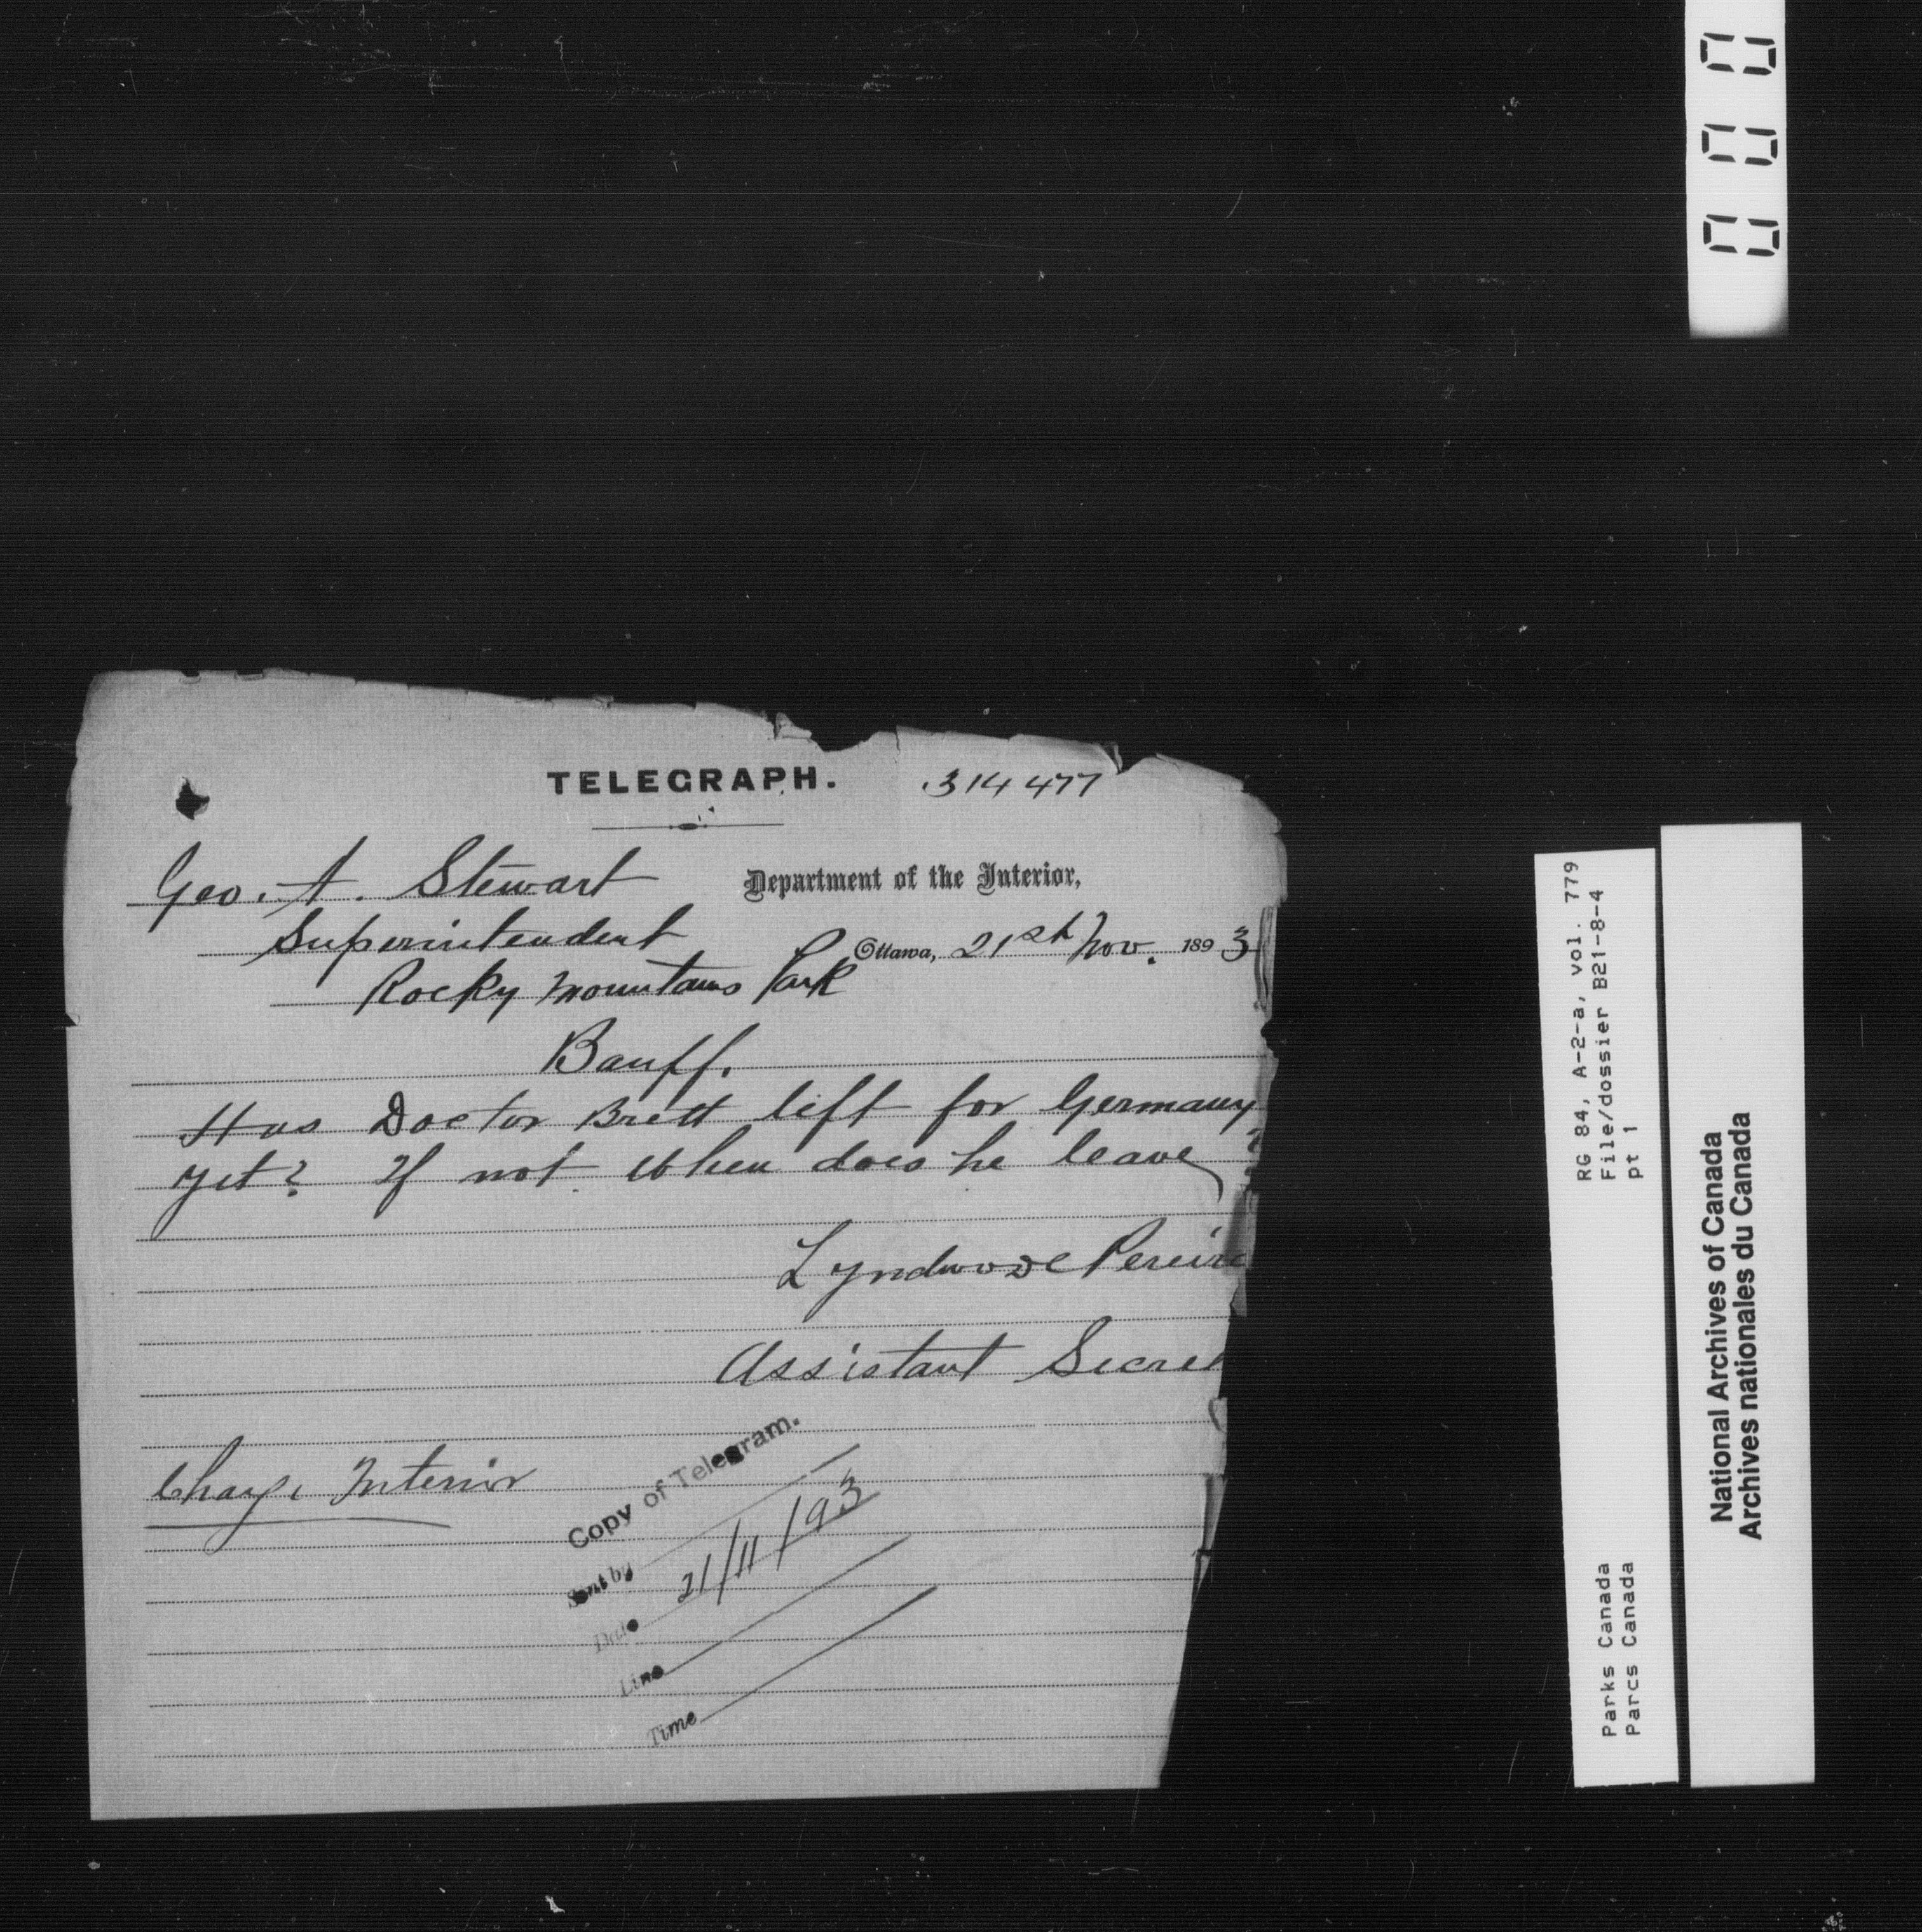 TELEGRAPH. 314477
Geo. A. Stewart
Department of the Interior,
Superintendent
Ottawa, 21st Nov. 1893
Rocky Mountains Park
Banff.
Has Doctor Brett left for Germany
yet? If not when does he leave ?
Lyndwode Pereira
Assistant Secret
Charge Interior
Copy of Telegram.
Sent by
Date 21/11/93
Line
Time
RG 84, A-2-a, vol. 779
File/dossier B21-8-4
pt 1
Parks Canada
Parcs Canada
National Archives of Canada
Archives nationales du Canada
000